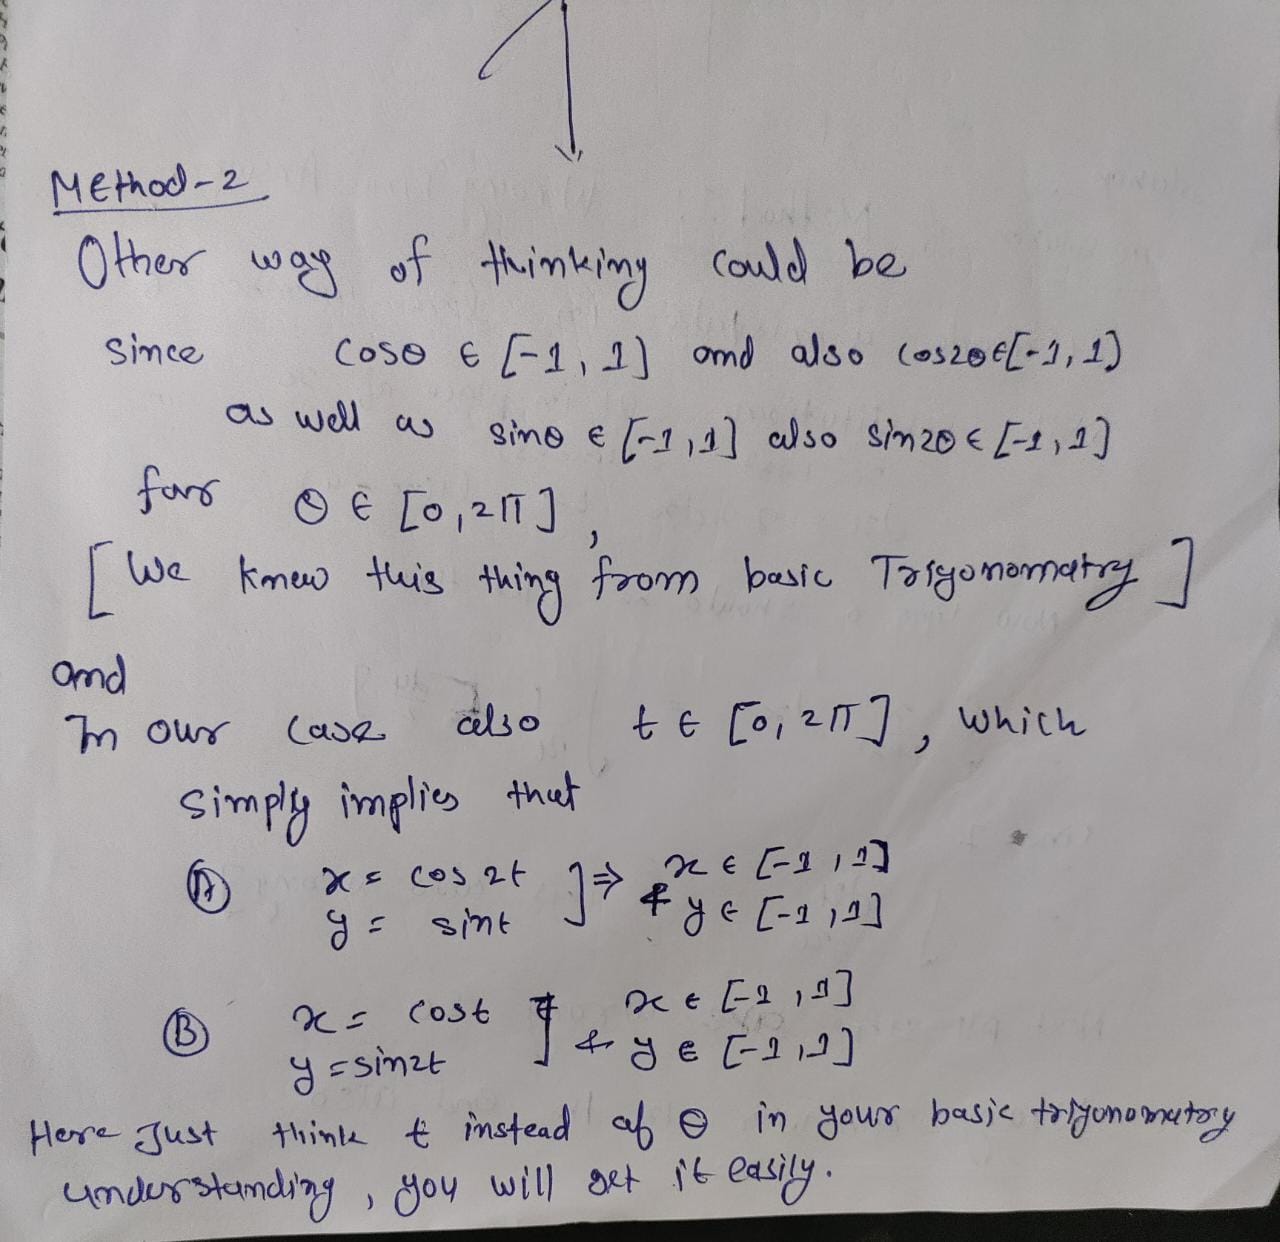 Method-2
Other way of thinking could be
since cosθ ∈ [-1, 1] and also cos2θ∈[-1, 1]
as well as sinθ ∈ [-1, 1] also sin2θ ∈ [-1, 1]
for θ ∈ [0, 2π],
[We knew this thing from basic Trigonomatry]
and
In our case also t ∈ [0, 2π], which
simply implies that
Ⓐ x = cos 2t ]⇒ x ∈ [-1, 1]
y = sint & y ∈ [-1, 1]
Ⓑ x = cost ] x ∈ [-1, 1]
y = sin2t & y ∈ [-1, 1]
Here Just think t instead of θ in your basic trigonometry
understanding, you will get it easily.